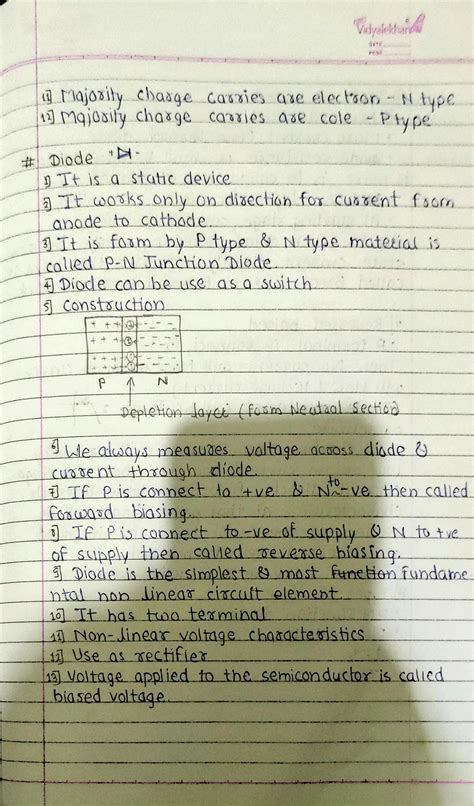 Vidyalekhan
DATE
PAGE
Majority charge carries are electron - N type
Majority charge carries are cole - P type
# Diode + -
1] It is a static device
2] It works only on direction for current from
anode to cathode.
3] It is form by P type & N type material is
called P-N Junction Diode.
4] Diode can be use as a switch
5] Construction
P N
Depletion layer (form Neutral Section)
6] We always measures voltage across diode &
current through diode.
7] If P is connect to +ve & N to -ve then called
forward biasing.
8] If P is connect to -ve of supply & N to +ve
of supply then called reverse biasing.
9] Diode is the simplest & most function fundame
ntal non linear circuit element.
10] It has two terminal
11] Non-linear voltage characteristics
12] Use as rectifier
13] Voltage applied to the semiconductor is called
biased voltage.